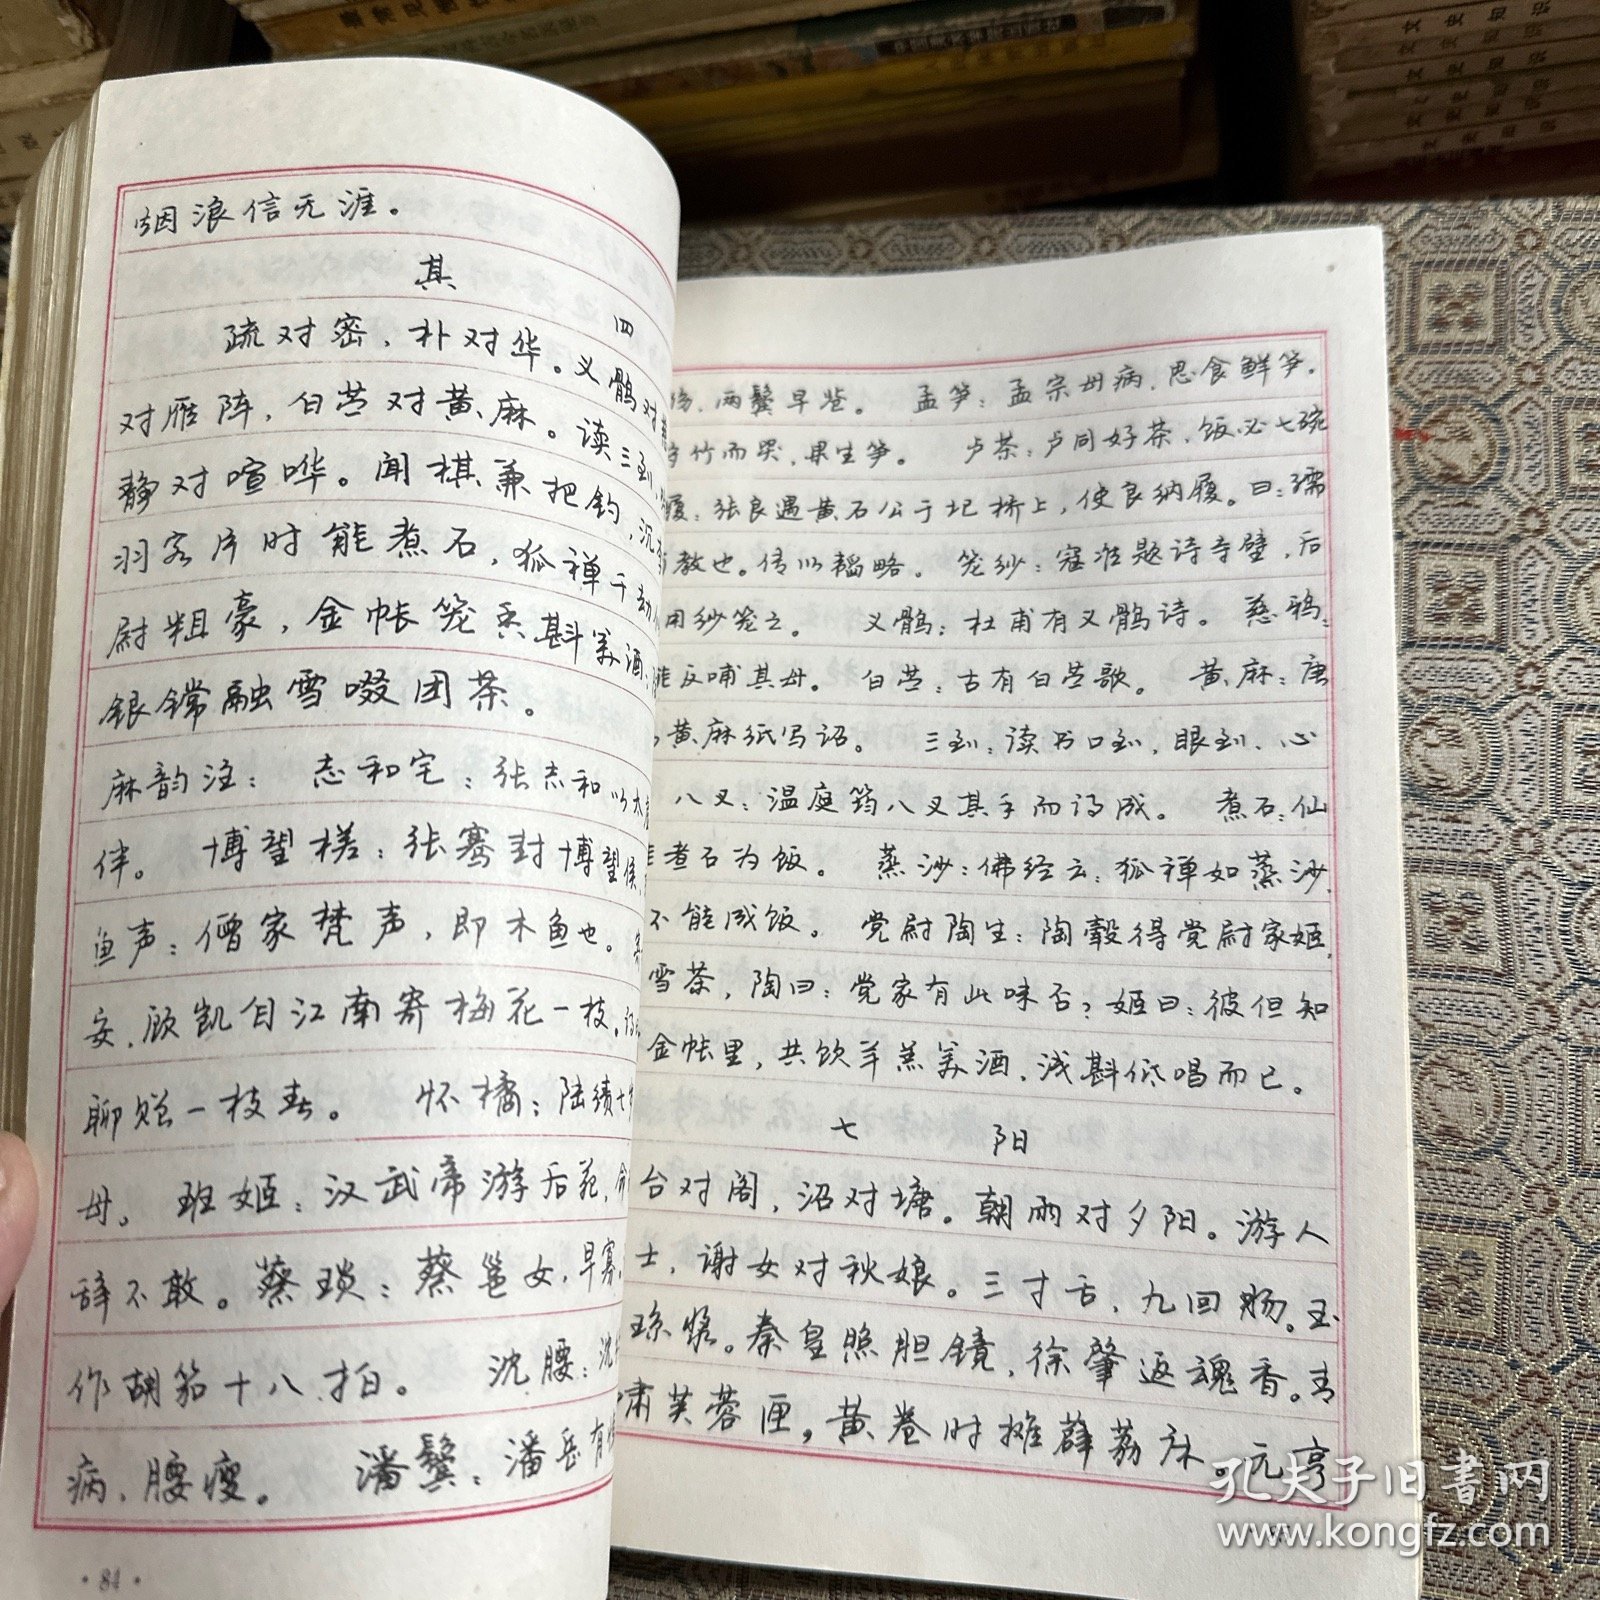 烟浪信无涯。
其 四
疏对密，朴对华。义鹘对
对雁阵，白苎对黄麻。读三到，
静对喧哗。闻棋兼把钓，沉
羽客片时能煮石，狐禅千劫
尉粗豪，金帐笼香斟美酒，
银铛融雪啜团茶。
麻韵注： 志和宅：张志和以
伴。 博望槎：张骞封博望侯，
鱼声：僧家梵声，即木鱼也。
安，顾凯自江南寄梅花一枝，
聊赠一枝春。 怀橘：陆绩七
母。 班姬：汉武帝游后苑，命
辞不敢。蔡琰：蔡邕女，早寡，
作胡笳十八拍。 沈腰：沈
病，腰瘦。 潘鬓：潘岳有
·84·
两鬓早苍。 孟笋：孟宗母病，思食鲜笋，
竹而哭，果生笋。 卢茶：卢同好茶，饭必七碗
履：张良遇黄石公于圯桥上，使良纳履。曰：孺
教也。传以韬略。 笼纱：寇准题诗寺壁，后
用纱笼之。 义鹘：杜甫有义鹘诗。 慈鸦：
反哺其母。 白苎：古有白苎歌。 黄麻：唐
黄麻纸写诏。 三到：读书口到，眼到，心
八叉：温庭筠八叉其手而诗成。 煮石：仙
煮石为饭。 蒸沙：佛经云：狐禅如蒸沙，
不能成饭。 党尉陶生：陶穀得党尉家姬，
雪茶，陶曰：党家有此味否？姬曰：彼但知
金帐里，共饮羊羔美酒，浅斟低唱而已。
七 阳
台对阁，沼对塘。朝雨对夕阳。游人
士，谢女对秋娘。三寸舌，九回肠。玉
琼浆。秦皇照胆镜，徐肇返魂香。青
啸芙蓉匣，黄卷时摊薜荔床。元亨
孔夫子旧书网
www.kongfz.com